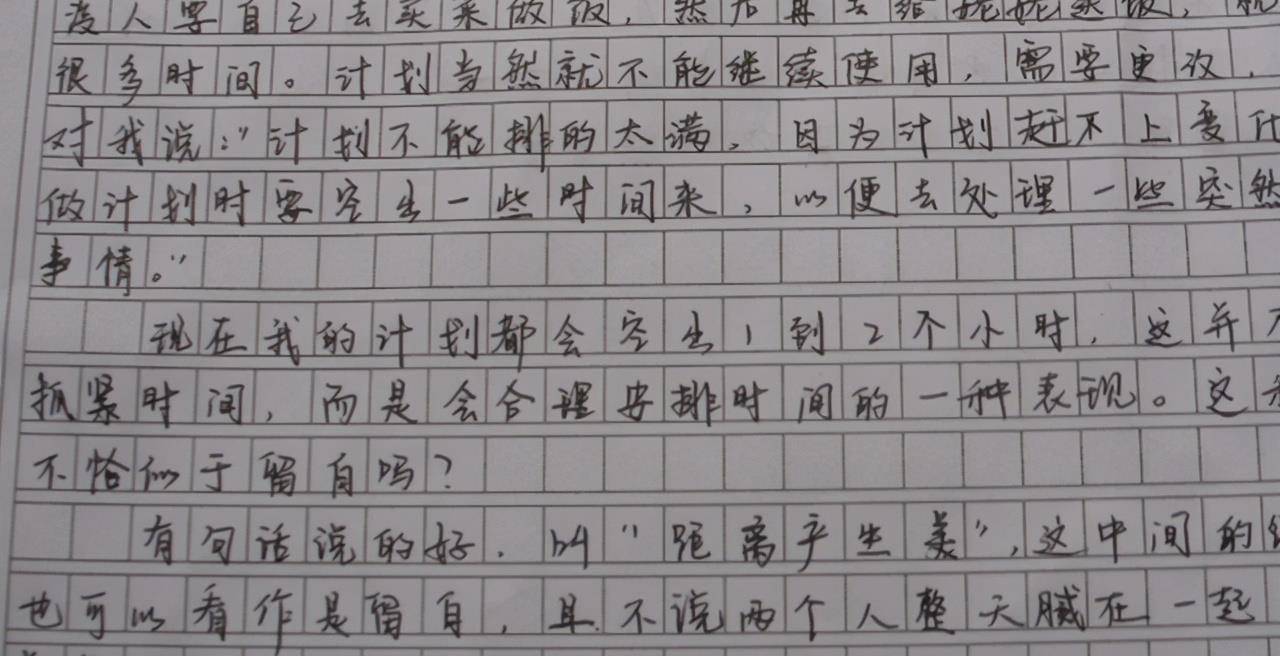 没人要自己去买菜做饭，然后再去给姥姥送饭，
很多时间。计划当然就不能继续使用，需要更改，
对我说：“计划不能排的太满，因为计划赶不上变化
做计划时要空出一些时间来，以便去处理一些突然
事情。”
现在我的计划都会空出1到2个小时，这并不
抓紧时间，而是会合理安排时间的一种表现。这
不恰似于留白吗？
有句话说的好，叫“距离产生美”，这中间的
也可以看作是留白，且不说两个人整天腻在一起